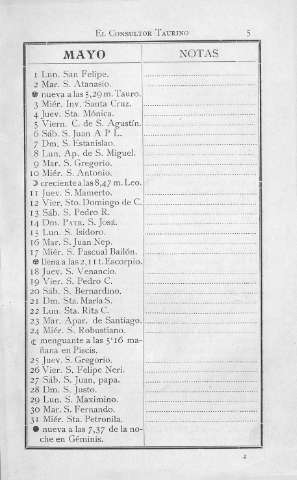 EL CONSULTOR TAURINO 5
MAYO
NOTAS
1 Lun. San Felipe.
2 Mar. S. Atanasio.
nueva a las 5,29 m. Tauro.
3 Miér. Inv. Santa Cruz.
4 Juev. Sta. Mónica.
5 Viern. C. de S. Agustín.
6 Sáb. S. Juan A P L.
7 Dm. S. Estanislao.
8 Lun. Ap. de S. Miguel.
9 Mar. S. Gregorio.
10 Miér. S. Antonio.
☽ creciente a las 8,47 m. Leo.
11 Juev. S. Mamerto.
12 Vier. Sto. Domingo de C.
13 Sáb. S. Pedro R.
14 Dm. PATR. S. José.
15 Lun. S. Isidoro.
16 Mar. S. Juan Nep.
17 Miér. S. Pascual Bailón.
llena a las 2,11 t. Escorpio.
18 Juev. S. Venancio.
19 Vier. S. Pedro C.
20 Sáb. S. Bernardino.
21 Dm. Sta. María S.
22 Lun. Sta. Rita C.
23 Mar. Apar. de Santiago.
24 Miér. S. Robustiano.
☾ menguante a las 5'16 ma-
ñana en Piscis.
25 Juev. S. Gregorio.
26 Vier. S. Felipe Neri.
27 Sáb. S. Juan, papa.
28 Dm. S. Justo.
29 Lun. S. Maximino.
30 Mar. S. Fernando.
31 Miér. Sta. Petronila.
● nueva a las 7,37 de la no-
che en Géminis.
2